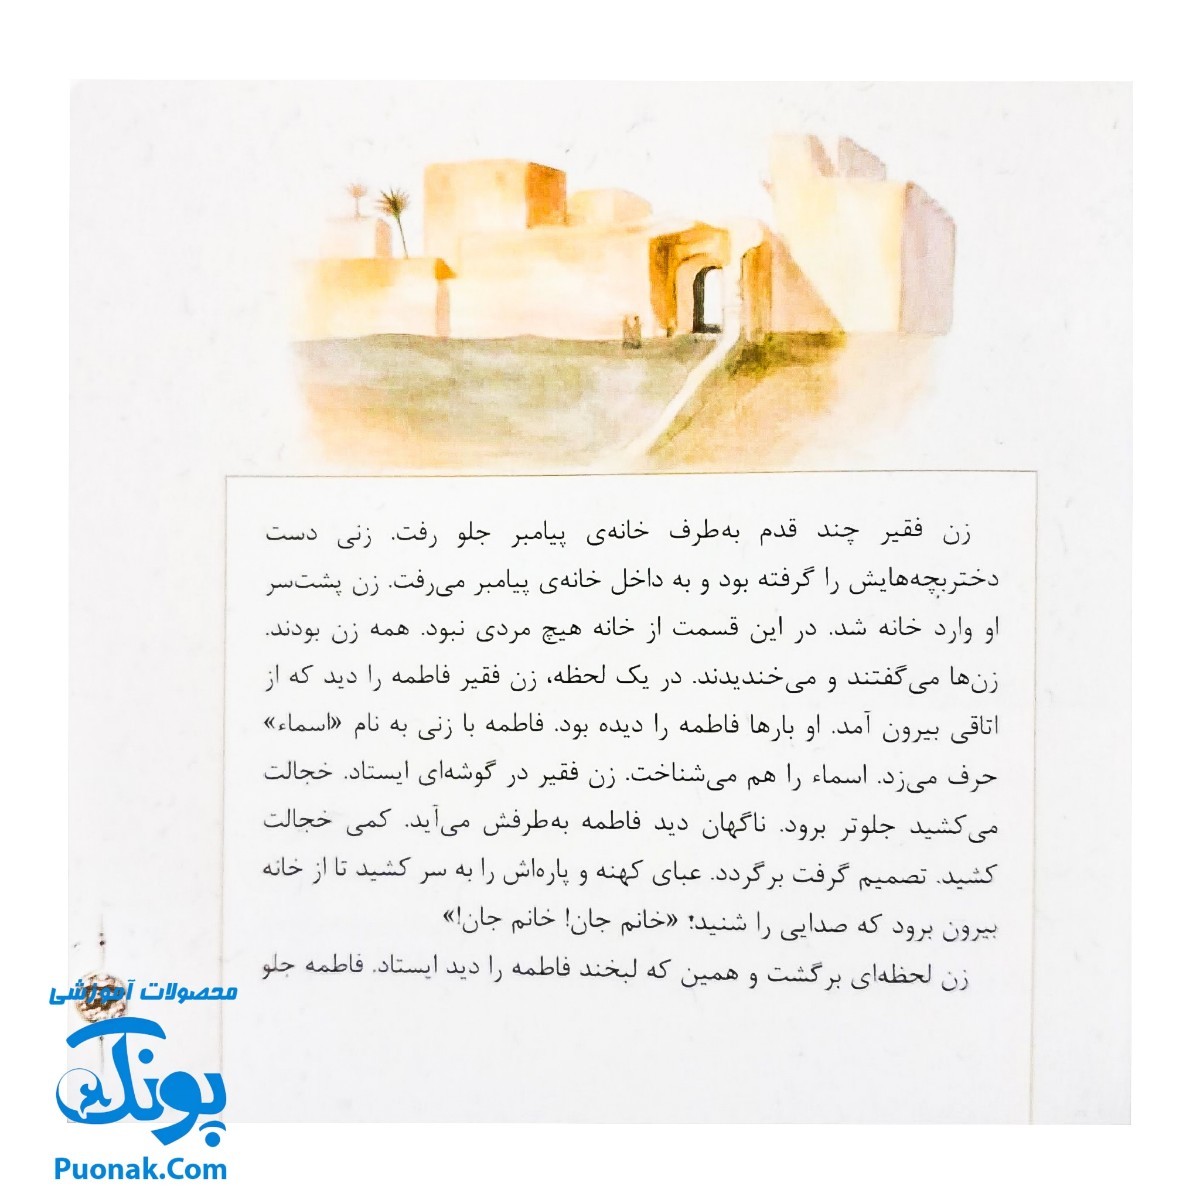 زن فقیر چند قدم به‌طرف خانه‌ی پیامبر جلو رفت. زنی دست
دختربچه‌هایش را گرفته بود و به داخل خانه‌ی پیامبر می‌رفت. زن پشت‌سر
او وارد خانه شد. در این قسمت از خانه هیچ مردی نبود. همه زن بودند.
زن‌ها می‌گفتند و می‌خندیدند. در یک لحظه، زن فقیر فاطمه را دید که از
اتاقی بیرون آمد. او بارها فاطمه را دیده بود. فاطمه با زنی به نام «اسماء»
حرف می‌زد. اسماء را هم می‌شناخت. زن فقیر در گوشه‌ای ایستاد. خجالت
می‌کشید جلوتر برود. ناگهان دید فاطمه به‌طرفش می‌آید. کمی خجالت
کشید. تصمیم گرفت برگردد. عبای کهنه و پاره‌اش را به سر کشید تا از خانه
بیرون برود که صدایی را شنید: «خانم جان! خانم جان!»
زن لحظه‌ای برگشت و همین که لبخند فاطمه را دید ایستاد. فاطمه جلو
محصولات آموزشی
پونک
Puonak.Com